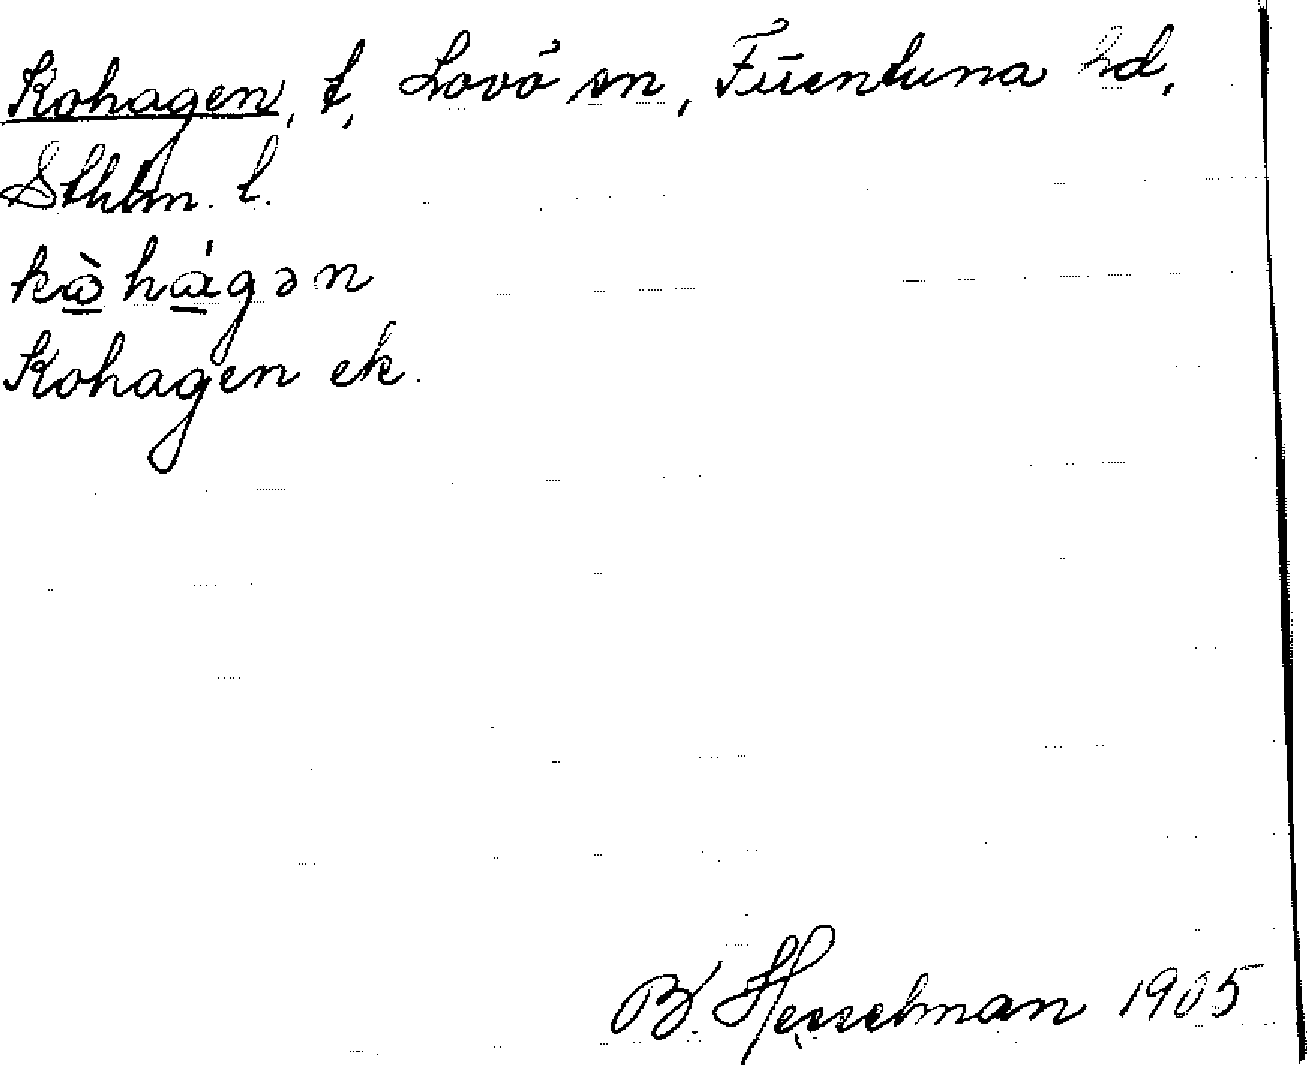 Kohagen, t, Lovö sn, Färentuna hd,
Sthlm. l.
kàhágən
Kohagen ek.
B. Hesselman 1905